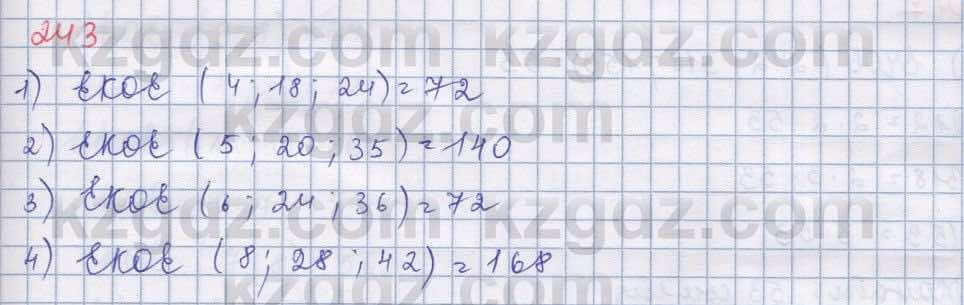 243
1) ЕКОЕ (4; 18; 24) = 72
2) ЕКОЕ (5; 20; 35) = 140
3) ЕКОЕ (6; 24; 36) = 72
4) ЕКОЕ (8; 28; 42) = 168
kzgdz.com kzgdz.com
kzgdz.com
kzgdz.com kzgdz.com
kzgdz.com